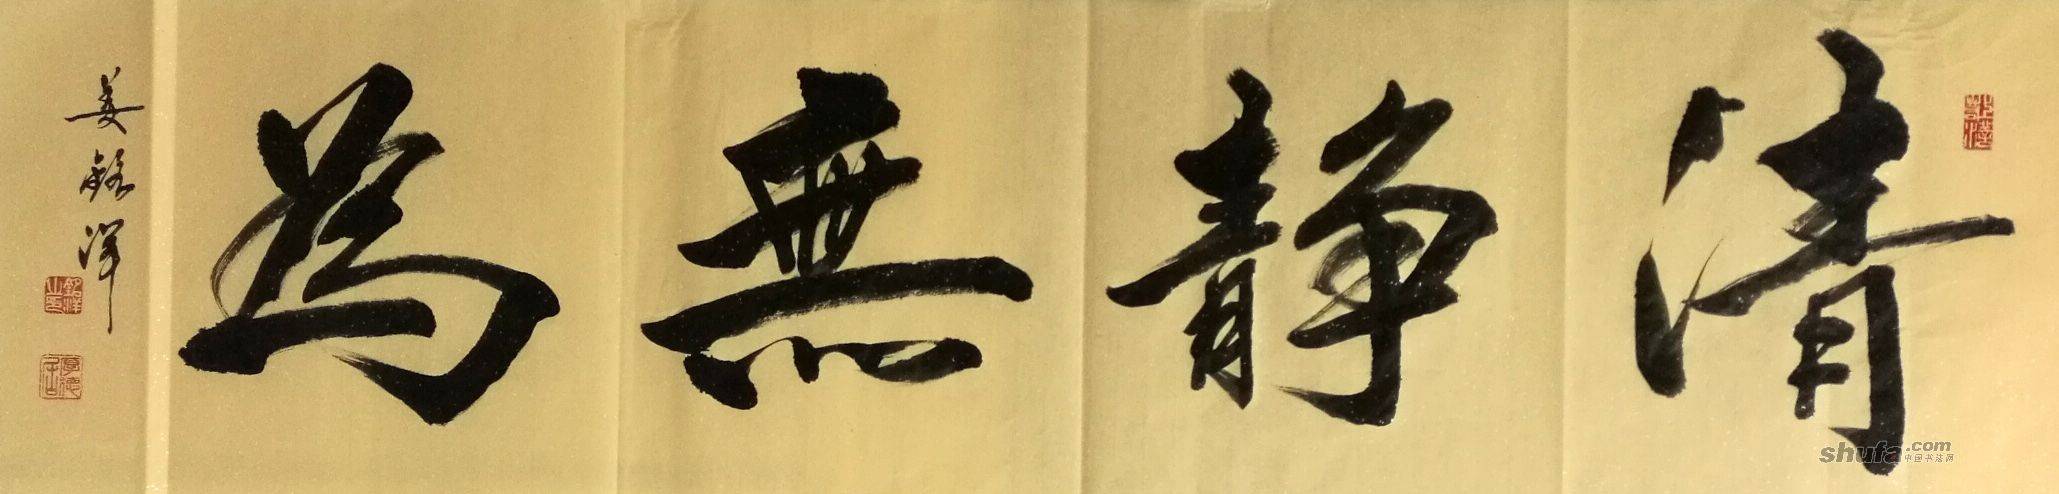 清静無為
姜銘洋
shufa.com
中国书法网